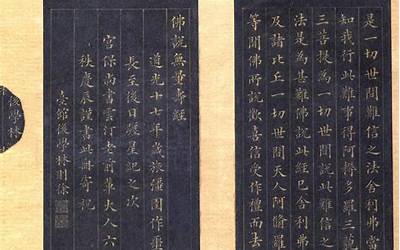 是一切世間難信之法舍利弗當
知我行此難事得阿耨多羅三藐
三菩提為一切世間說此難信之
法是為甚難佛說此經已舍利弗
及諸比丘一切世間天人阿脩羅
等聞佛所說歡喜信受作禮而去
佛說無量壽經
道光十七年歲旅彊圉作噩
長至後日躔星紀之次
宮保尚書雲汀老前輩大人六
秩慶辰謹書此冊寄祝
臺館後學林則徐
後學林